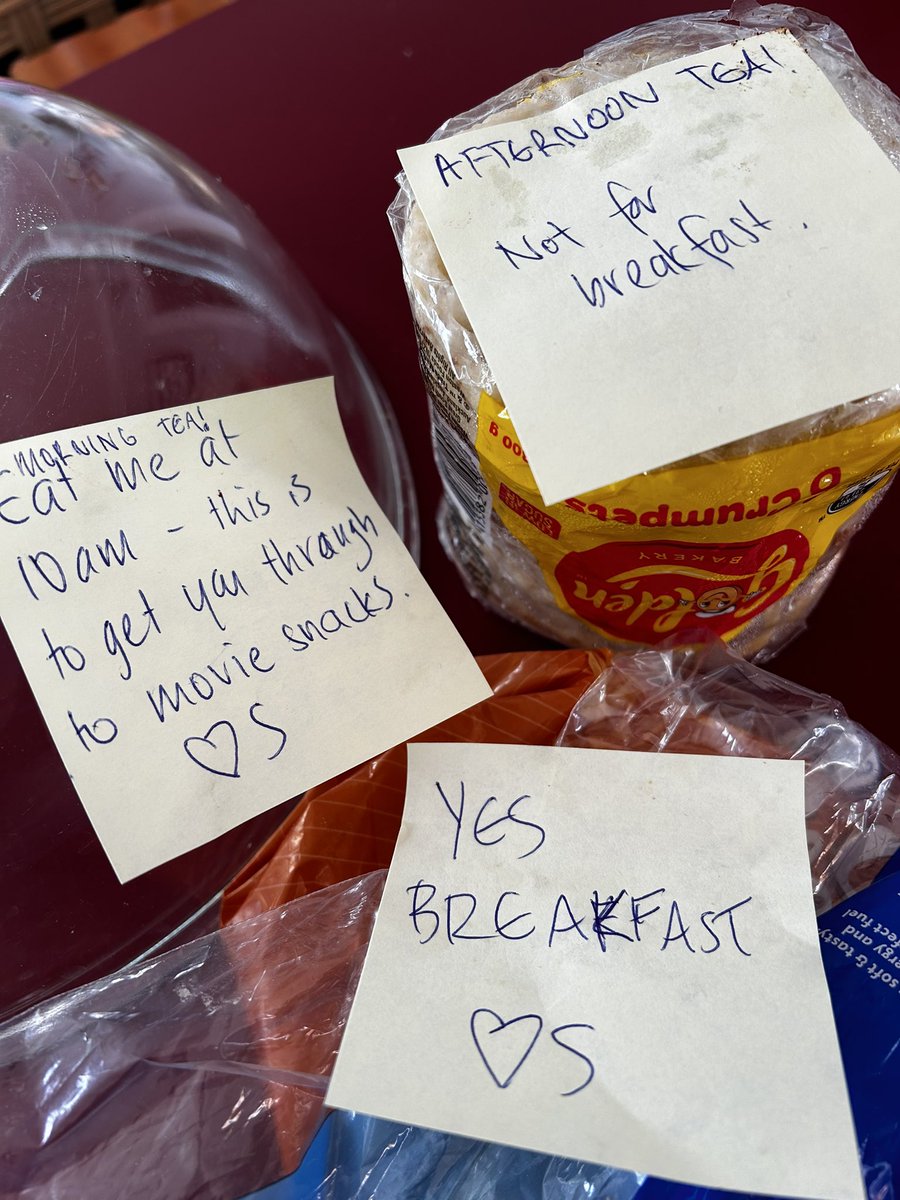 AFTERNOON TEA!
Not for
breakfast.
-MORNING TEA!
Eat me at
10am - this is
to get you through
to movie snacks.
♡S
YES
BREAKFAST
♡S
Crumpets
Golden
BAKERY
SUGAR
soft & tasty
fect fuel